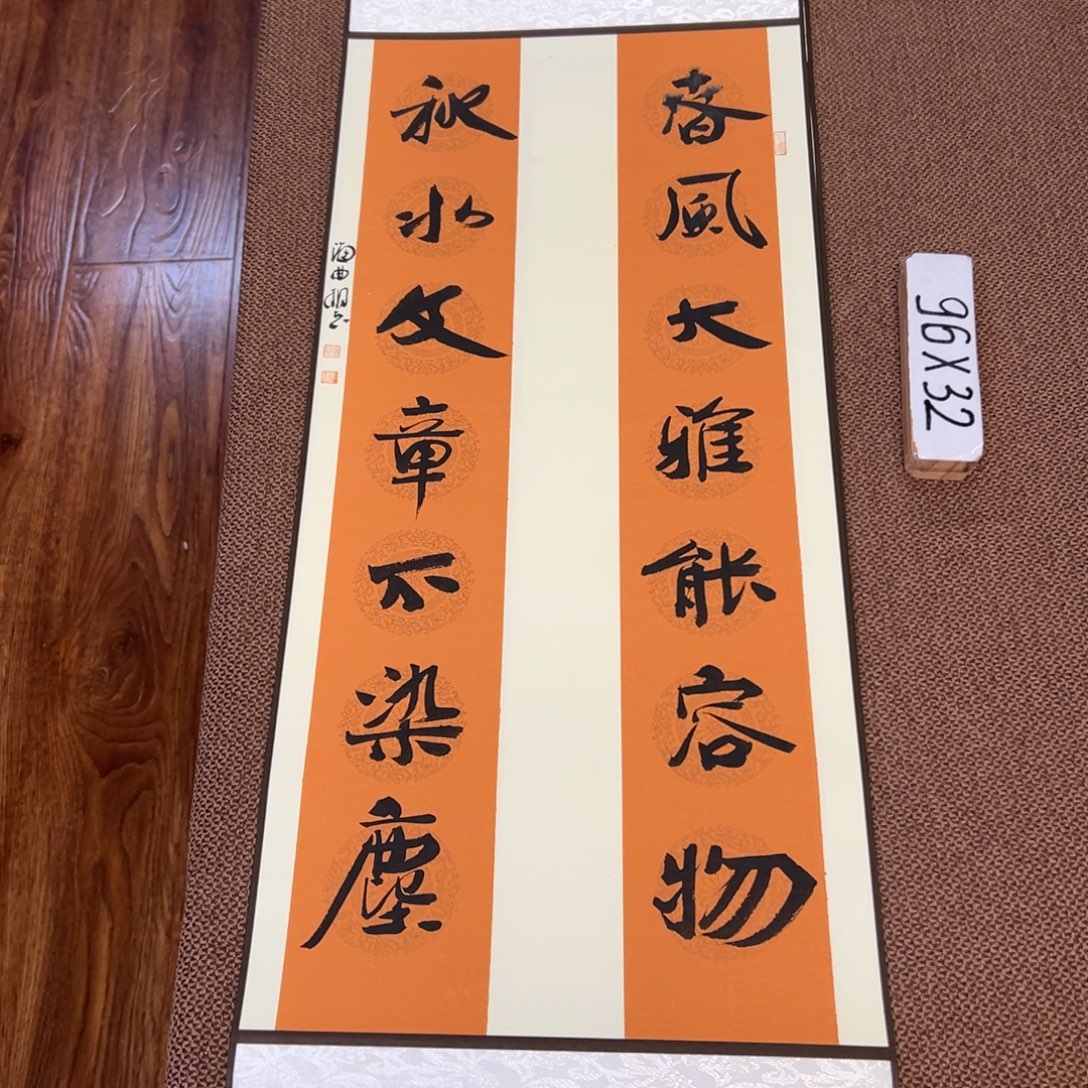 春風大雅能容物
秋水文章不染塵
96X32